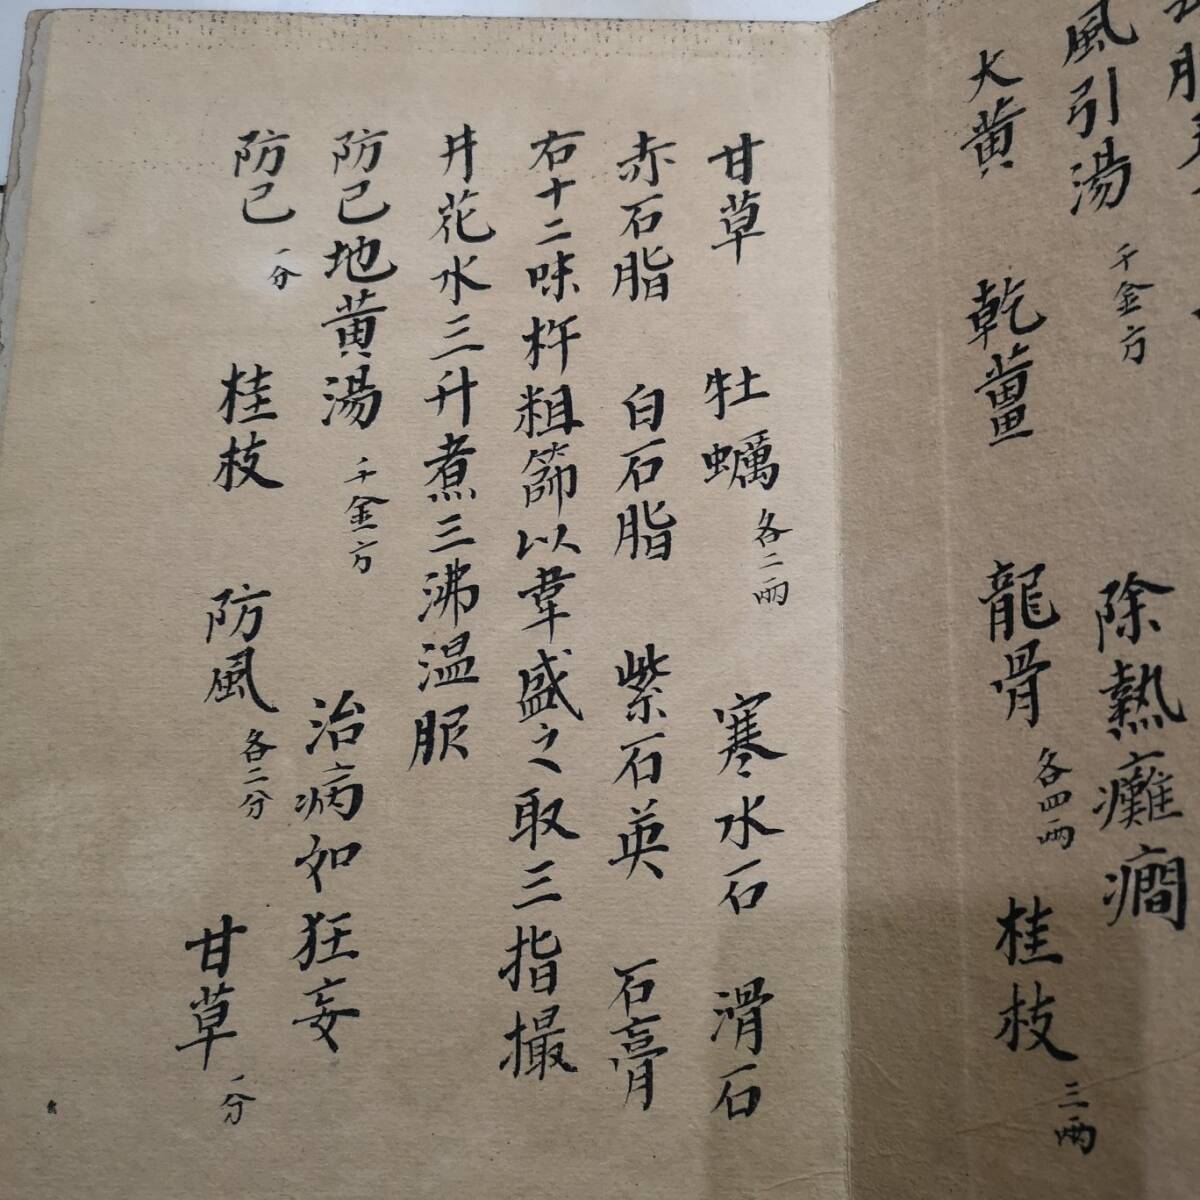 風引湯 千金方 除熱癱癇
大黄 乾薑 龍骨 各四兩 桂枝 三兩
甘草 牡蠣 各二兩 寒水石 滑石
赤石脂 白石脂 紫石英 石膏
右十二味杵粗篩以韋盛之取三指撮
井花水三升煮三沸温服
防己地黄湯 千金方 治病如狂妄
防己 一分 桂枝 防風 各二分 甘草 一分